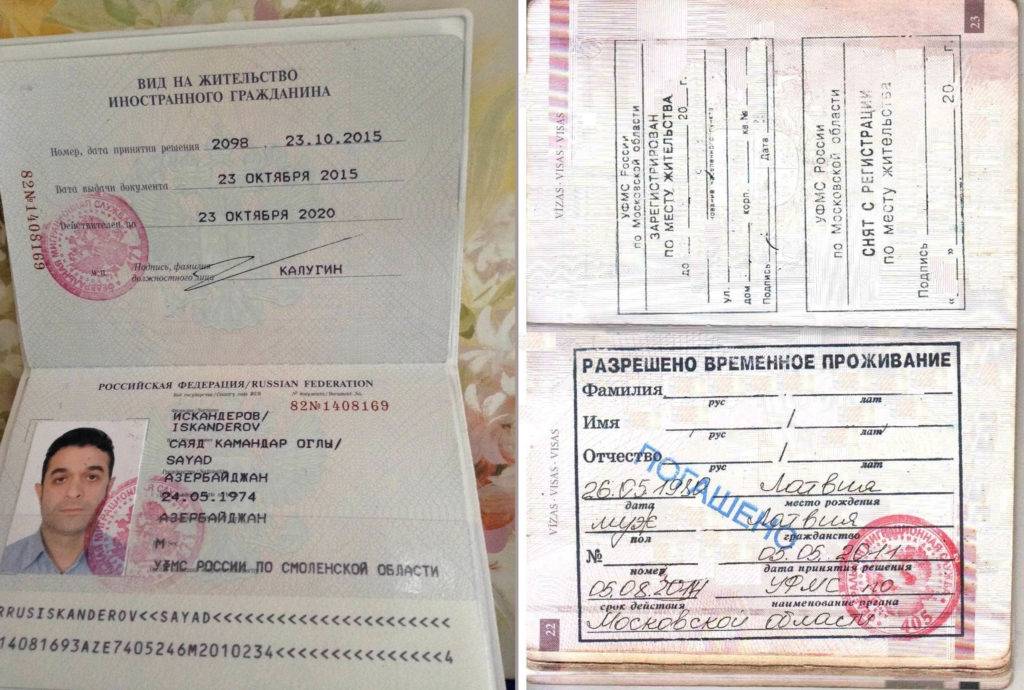 ВИД НА ЖИТЕЛЬСТВО
ИНОСТРАННОГО ГРАЖДАНИНА
Номер, дата принятия решения 2098 23.10.2015
Дата выдачи документа 23 ОКТЯБРЯ 2015
Действителен по 23 ОКТЯБРЯ 2020
М.П.
Подпись, фамилия
должностного лица КАЛУГИН
82№1408169
РОССИЙСКАЯ ФЕДЕРАЦИЯ/RUSSIAN FEDERATION
82№1408169
ИСКАНДЕРОВ/
ISKANDEROV
САЯД КАМАНДАР ОГЛЫ/
SAYAD
АЗЕРБАЙДЖАН
24.05.1974
АЗЕРБАЙДЖАН
М
УФМС РОССИИ ПО СМОЛЕНСКОЙ ОБЛАСТИ
RRUSISKANDEROV<<SAYAD<<<<<<<<<<<<<<<<<<<<<<
14081693AZE7405246M2010234<<<<<<<<<<<<<<<<4
23
VIZAS · VISAS · VISAS
УФМС РОССИИ
по Московской области
ЗАРЕГИСТРИРОВАН
ПО МЕСТУ ЖИТЕЛЬСТВА
до 20 г.
ул.
дом корп. кв.№
Подпись Дата
УФМС России
по Московской области
СНЯТ С РЕГИСТРАЦИИ
по месту жительства
Подпись
« » 20 г.
РАЗРЕШЕНО ВРЕМЕННОЕ ПРОЖИВАНИЕ
Фамилия
рус лат
Имя /
рус лат
Отчество /
рус лат
ПОГАШЕНО
26.05.198 Латвия
дата место рождения
муж Латвия
пол гражданство
№ 05.05.2011
номер дата принятия решения
05.08.2014 УФМС по
срок действия наименование органа
Московской области
405
VIZAS · VISAS · VISAS
22